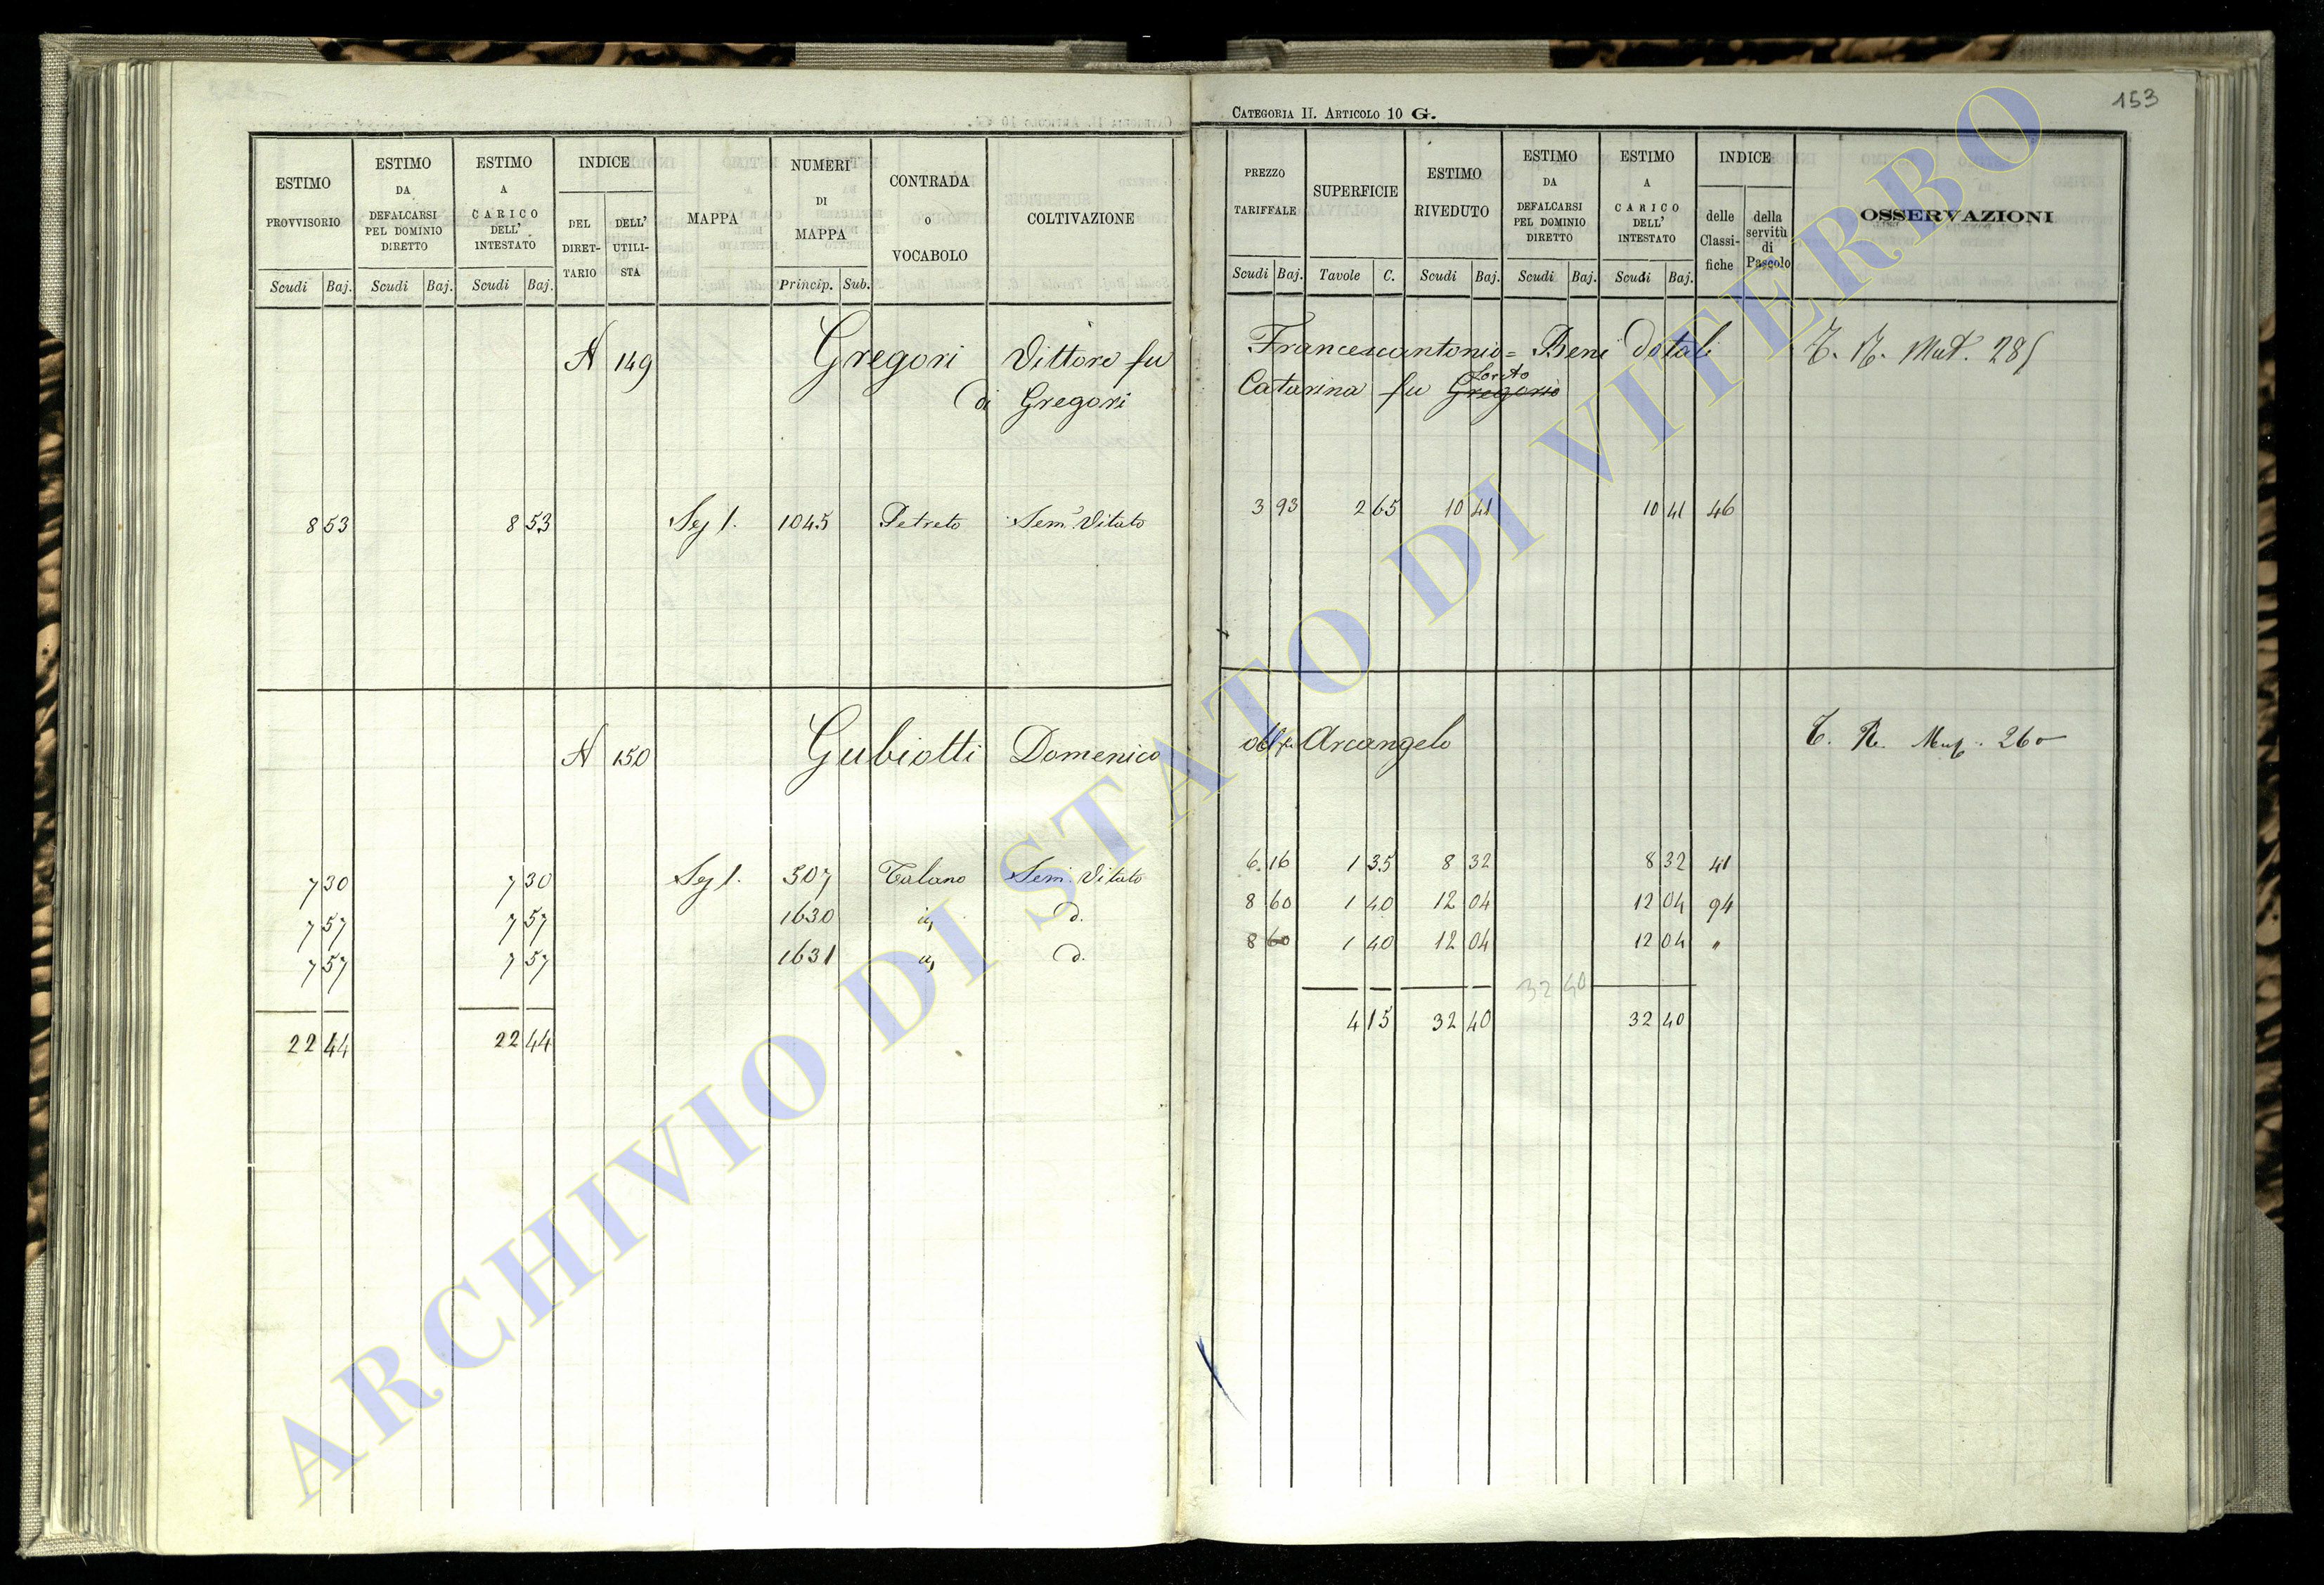 153
CATEGORIA II. ARTICOLO 10 G.
ESTIMO PROVVISORIO
ESTIMO DA DEFALCARSI PEL DOMINIO DIRETTO
ESTIMO A CARICO DELL' INTESTATO
INDICE
DEL DIRET-TARIO
DELL' UTILI-STA
MAPPA
NUMERI DI MAPPA
CONTRADA o VOCABOLO
COLTIVAZIONE
Scudi Baj. Scudi Baj. Scudi Baj. Princip. Sub.
PREZZO TARIFFALE
SUPERFICIE
ESTIMO RIVEDUTO
ESTIMO DA DEFALCARSI PEL DOMINIO DIRETTO
ESTIMO A CARICO DELL' INTESTATO
INDICE
delle Classi-fiche
della servitù di Pascolo
OSSERVAZIONI
Scudi Baj. Tavole C. Scudi Baj. Scudi Baj. Scudi Baj.
N 149 Gregori Vittore fu Francescantonio = Beni dotali
di Gregori Catarina fu Gregorio Lorito
8 53 8 53 Sez 1. 1045 Petreto Sem. Vitato 3 93 2 65 10 41 10 41 46
N 150 Gubiotti Domenico fu Arcangelo
7 30 7 30 Sez 1. 507 Talano Sem. Vitato 6 16 1 35 8 32 8 32 41
7 57 7 57 1630 d. 8 60 1 40 12 04 12 04 94
7 57 7 57 1631 d. 8 60 1 40 12 04 12 04 "
32 40
22 44 22 44 4 15 32 40 32 40
ARCHIVIO DI STATO DI VITERBO